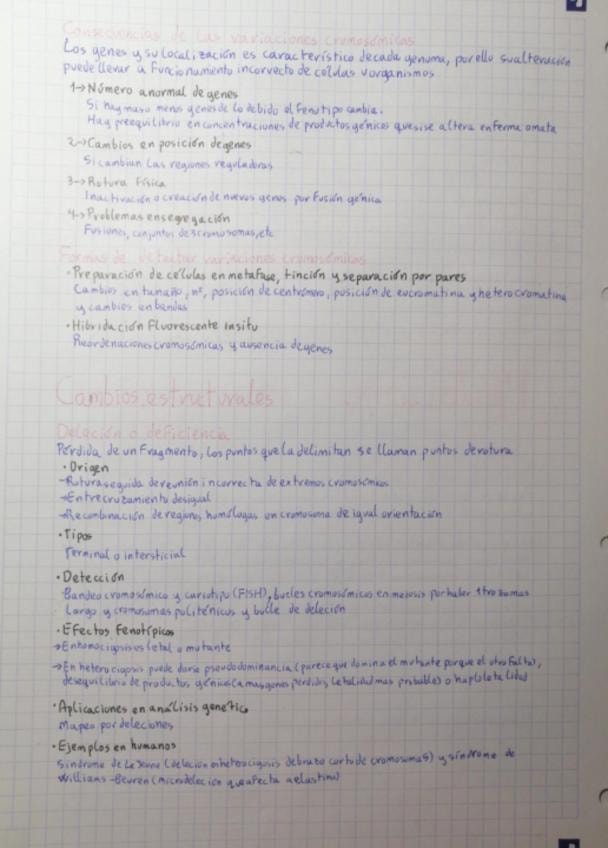 Consecuencias de las variaciones cromosómicas
Los genes y su localización es característico de cada genoma, por ello su alteración
puede llevar a funcionamiento incorrecto de células y organismos
1→Número anormal de genes
Si hay mas o menos genes de lo debido el fenotipo cambia.
Hay preequilibrio en concentraciones de productos génicos que si se altera enferma o mata
2→Cambios en posición de genes
Si cambian las regiones reguladoras
3→Rotura física
Inactivación o creación de nuevos genes por fusión génica
4→Problemas en segregación
Fusiones, conjuntos de 3 cromosomas, etc
Formas de detectar variaciones cromosómicas
·Preparación de células en metafase, tinción y separación por pares
Cambios en tamaño, nº, posición de centrómero, posición de eucromatina y heterocromatina
y cambios en bandas
·Hibridación Fluorescente in situ
Reordenaciones cromosómicas y ausencia de genes
Cambios estructurales
Deleción o deficiencia
Pérdida de un fragmento, los puntos que la delimitan se llaman puntos de rotura
·Origen
→Rotura seguida de reunión incorrecta de extremos cromosómicos
→Entrecruzamiento desigual
→Recombinación de regiones homólogas en cromosoma de igual orientación
·Tipos
Terminal o intersticial
·Detección
Bandeo cromosómico y cariotipo (FISH), bucles cromosómicos en meiosis por haber 1 cromosoma
largo y cromosomas politénicos y bucle de deleción
·Efectos Fenotípicos
→En homocigosis es letal o mutante
→En heterocigosis puede darse pseudodominancia (parece que domina el mutante porque el otro falta),
desequilibrio de productos génicos (a mas genes perdidos, letalidad mas probable) o haploletalidad
·Aplicaciones en análisis genético
Mapeo por deleciones
·Ejemplos en humanos
Síndrome de Le Jeune (deleción en heterocigosis de brazo corto de cromosoma 5) y síndrome de
Williams-Beuren (microdeleción que afecta a elastina)